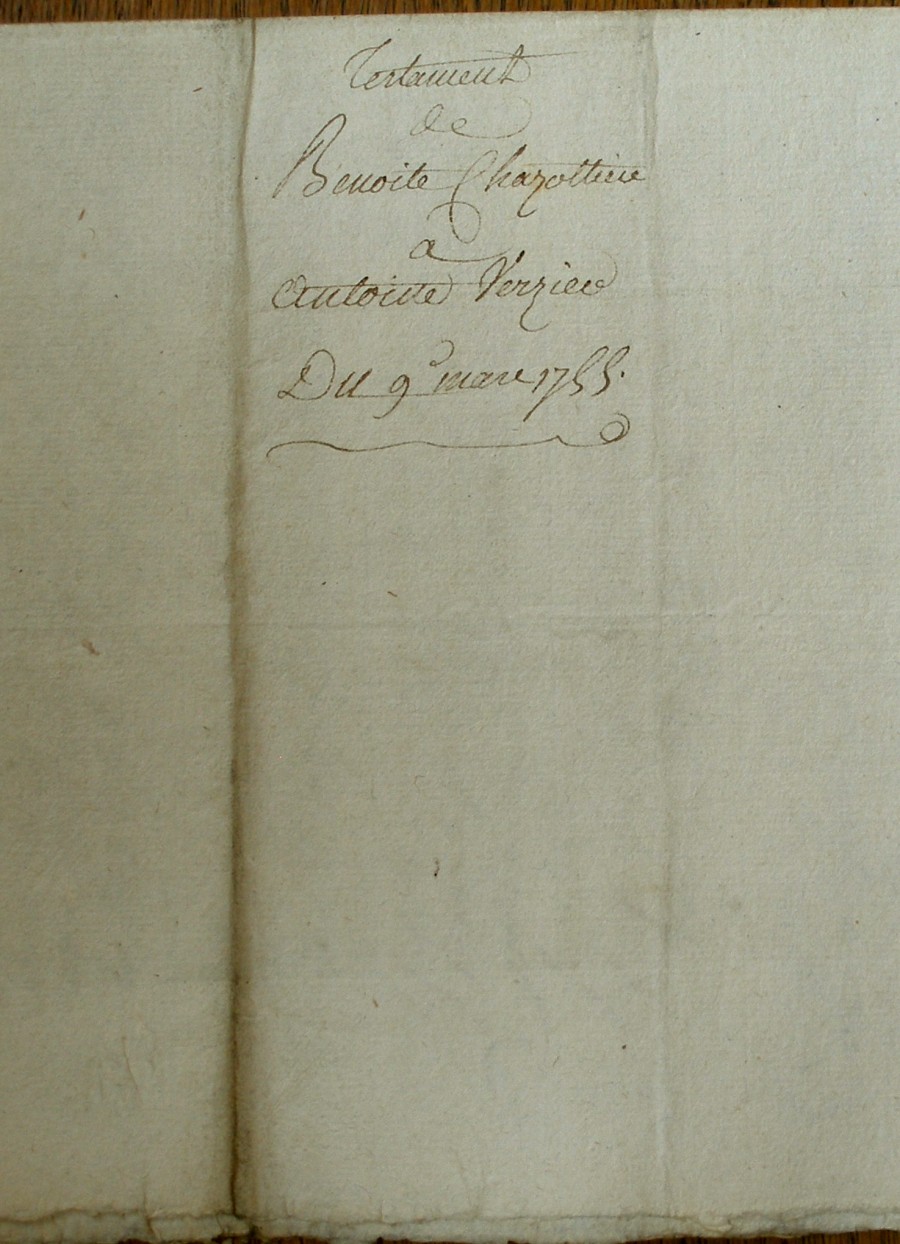 Testament
de
Benoite Chazottiere
a
Antoine Verziere
Du 9e mars 1755.